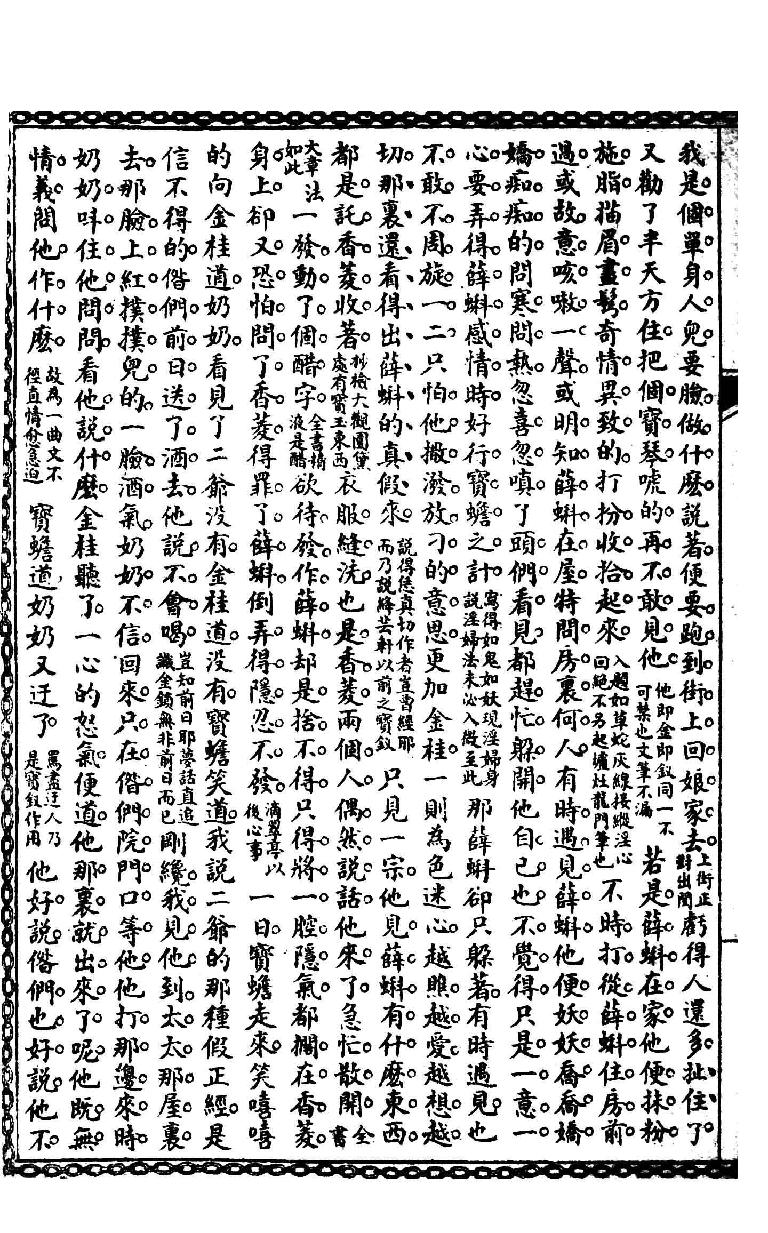 我是個單身人兒要臉做什麽說著便要跑到街上回娘家去上街正對出閣虧得人還多扯住了
又勸了半天方住把個寶琴唬的再不敢見他他即金即釵同一不可禁也文筆不漏若是薛蝌在家他便抹粉
施脂描眉畫鬢奇情異致的打扮收拾起來入題如草蛇灰線接縱淫心回絕不另起爐灶龍門筆也不時打從薛蝌住房前
過或故意咳嗽一聲或明知薛蝌在屋特問房裏何人有時遇見薛蝌他便妖妖喬喬嬌
嬌痴痴的問寒問熱忽喜忽嗔丫頭們看見都趕忙躲開他自己也不覺得只是一意一
心要弄得薛蝌感情時好行寶蟾之計寫得如鬼如妖現淫婦身說淫婦法未必入微至此那薛蝌卻只躲著有時遇見也
不敢不周旋一二只怕他撒潑放刁的意思更加金桂一則為色迷心越瞧越愛越想越
切那裏還看得出薛蝌的真假來說得恁真切作者豈曾經耶而乃說絳芸軒以前之寶釵只見一宗他見薛蝌有什麽東西
都是託香菱收著抄檢大觀園黛處有寶玉東西衣服縫洗也是香菱兩個人偶然說話他來了急忙散開全書
大章法如此一發動了個醋字全書精液是醋欲待發作薛蝌却是捨不得只得將一腔隱氣都擱在香菱
身上卻又恐怕問了香菱得罪了薛蝌倒弄得隱忍不發滴翠亭以後心事一日寶蟾走來笑嘻嘻
的向金桂道奶奶看見了二爺没有金桂道没有寶蟾笑道我說二爺的那種假正經是
信不得的偺們前日送了酒去他說不會喝豈知前日耶夢話直追識金鎖無非前日而已剛纔我見他到太太那屋裏
去那臉上紅撲撲兒的一臉酒氣奶奶不信回來只在偺們院門口等他他打那邊來時
奶奶呌住他問問看他說什麽金桂聽了一心的怒氣便道他那裏就出來了呢他既無
情義問他作什麽故為一曲文不徑直情愈急迫寶蟾道奶奶又迂了罵盡迂人乃是寶釵作用他好說偺們也好說他不